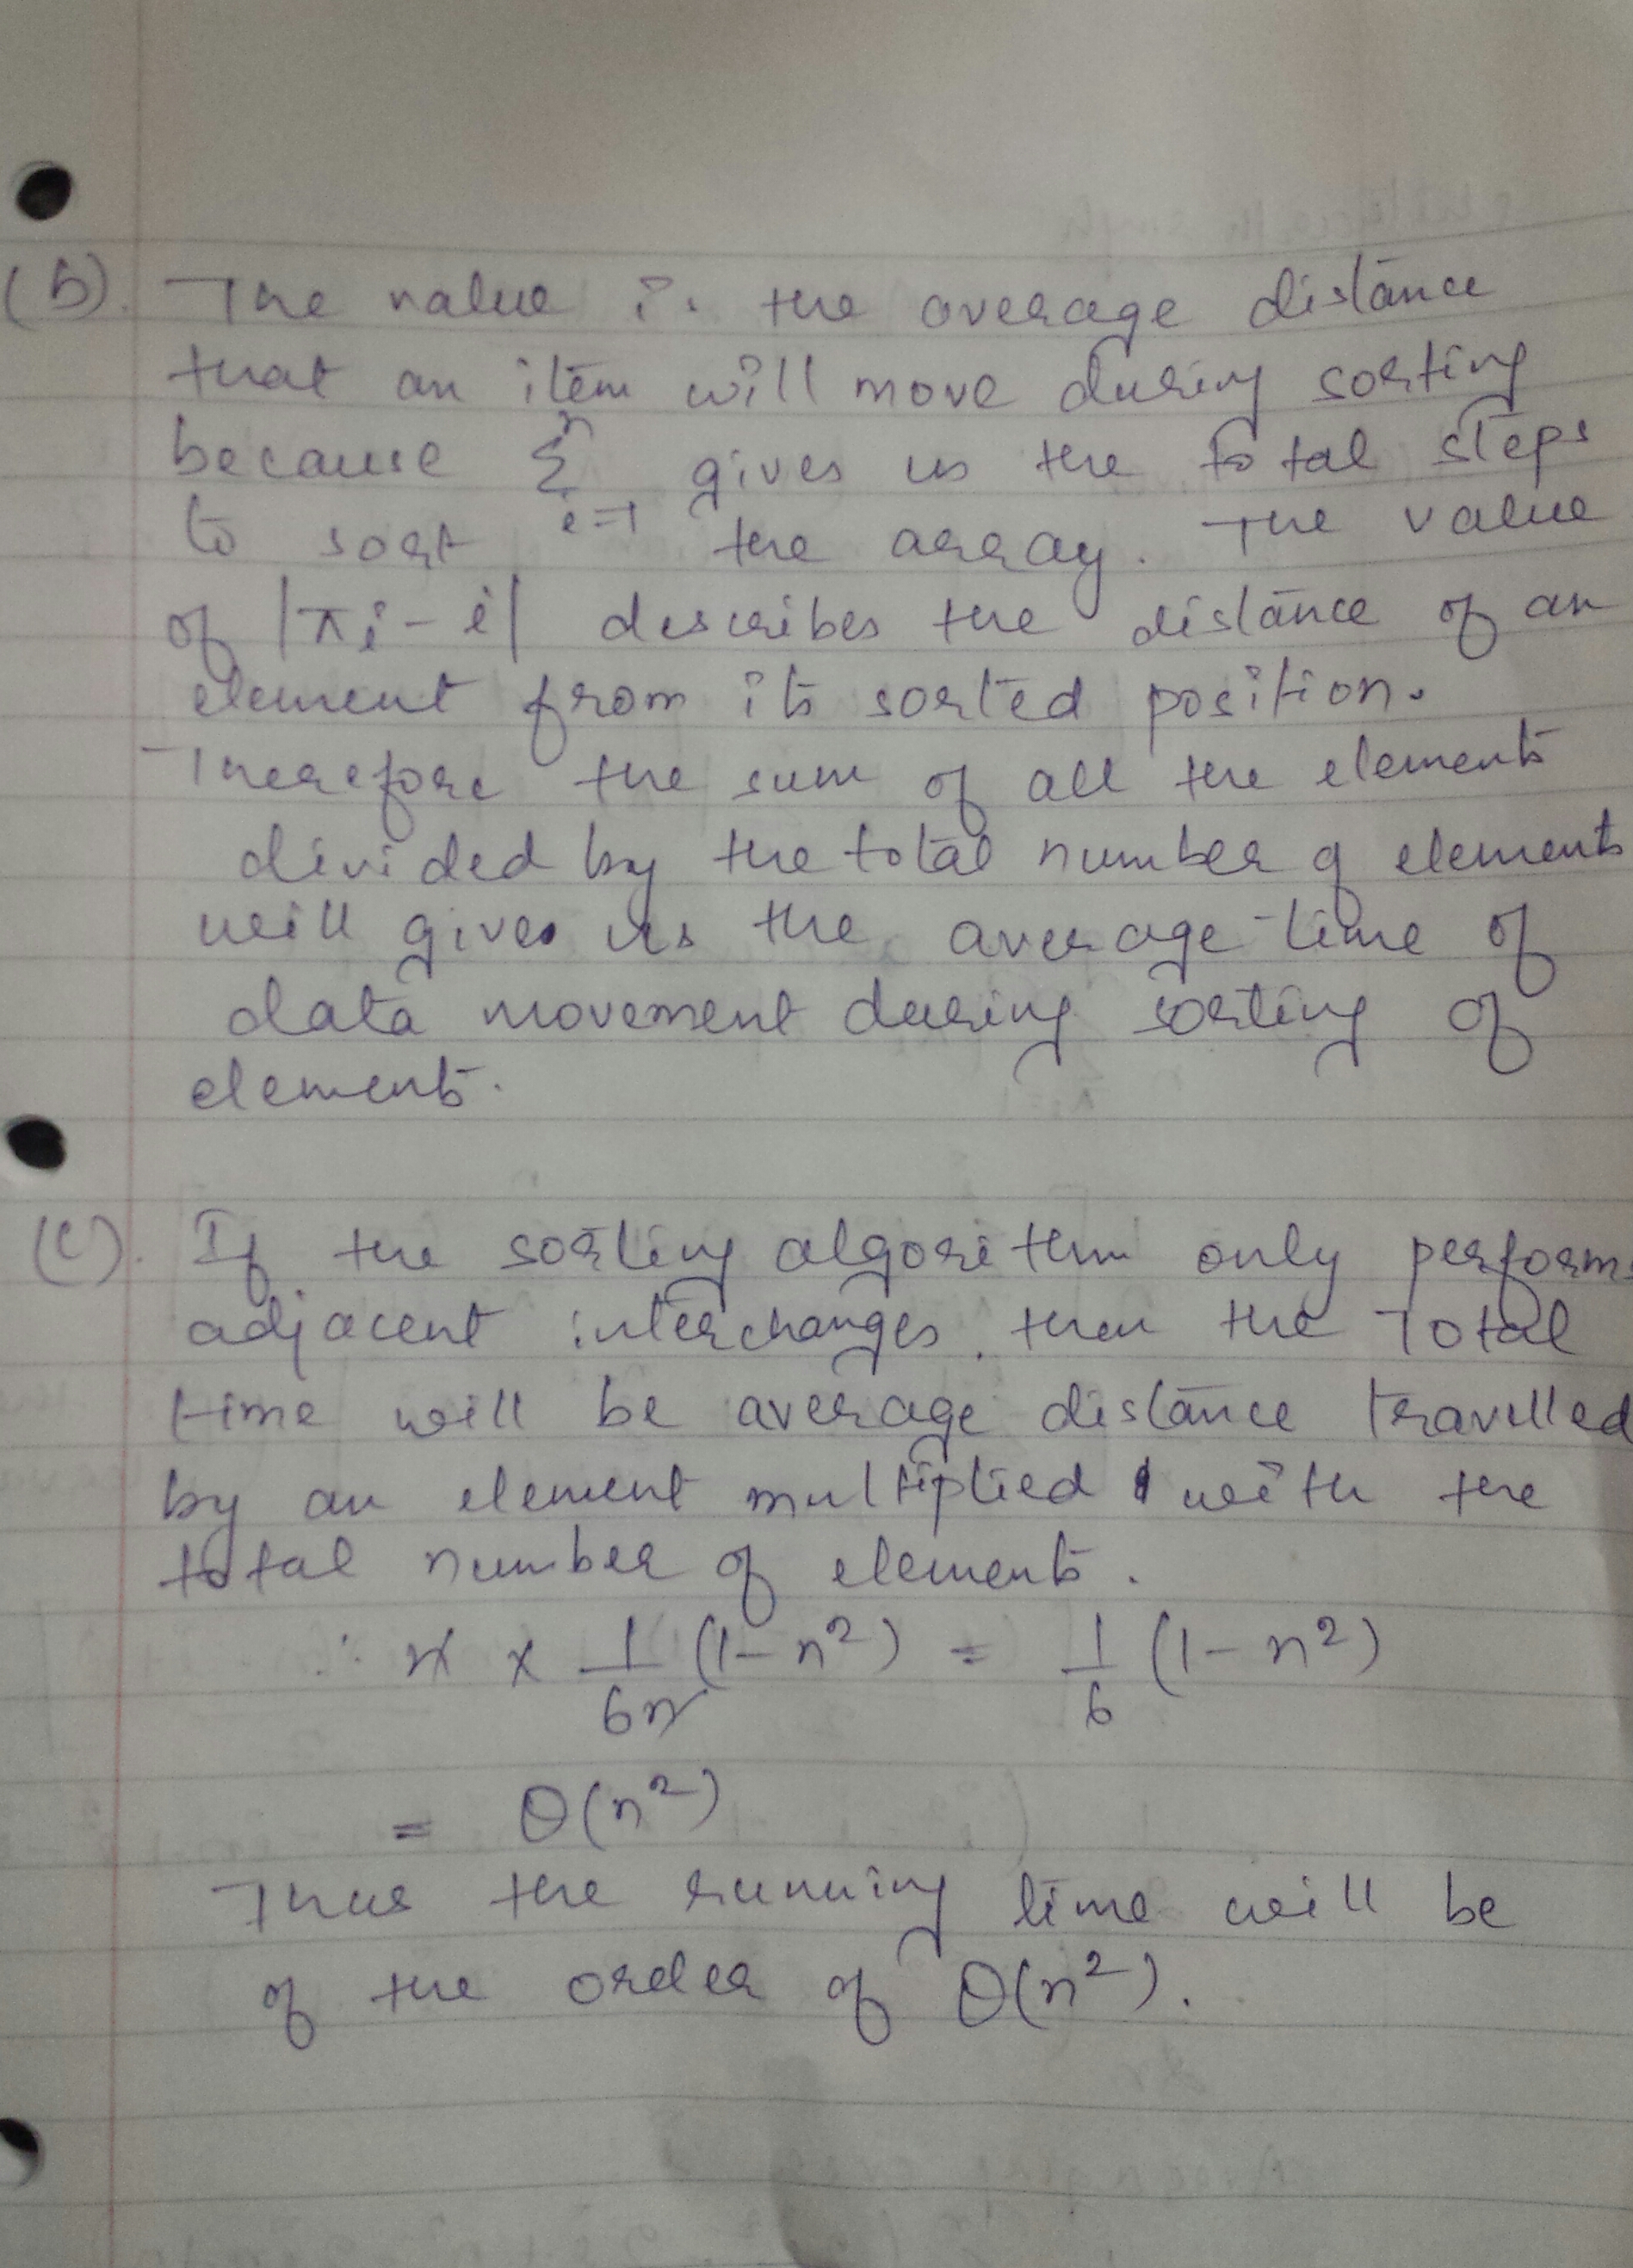 (b). The value is the average distance
that an item will move during sorting
because Σ gives us the total steps
n
i=1
to sort the array. The value
of |πi - i| describes the distance of an
element from its sorted position.
Therefore the sum of all the elements
divided by the total number of elements
will gives us the average time of
data movement during sorting of
elements.
(c). If the sorting algorithm only performs
adjacent interchanges, then the Total
time will be average distance travelled
by an element multiplied with the
total number of elements.
∴ n x 1/6n (1-n²) = 1/6 (1-n²)
= Θ(n²)
Thus the running time will be
of the order of Θ(n²).